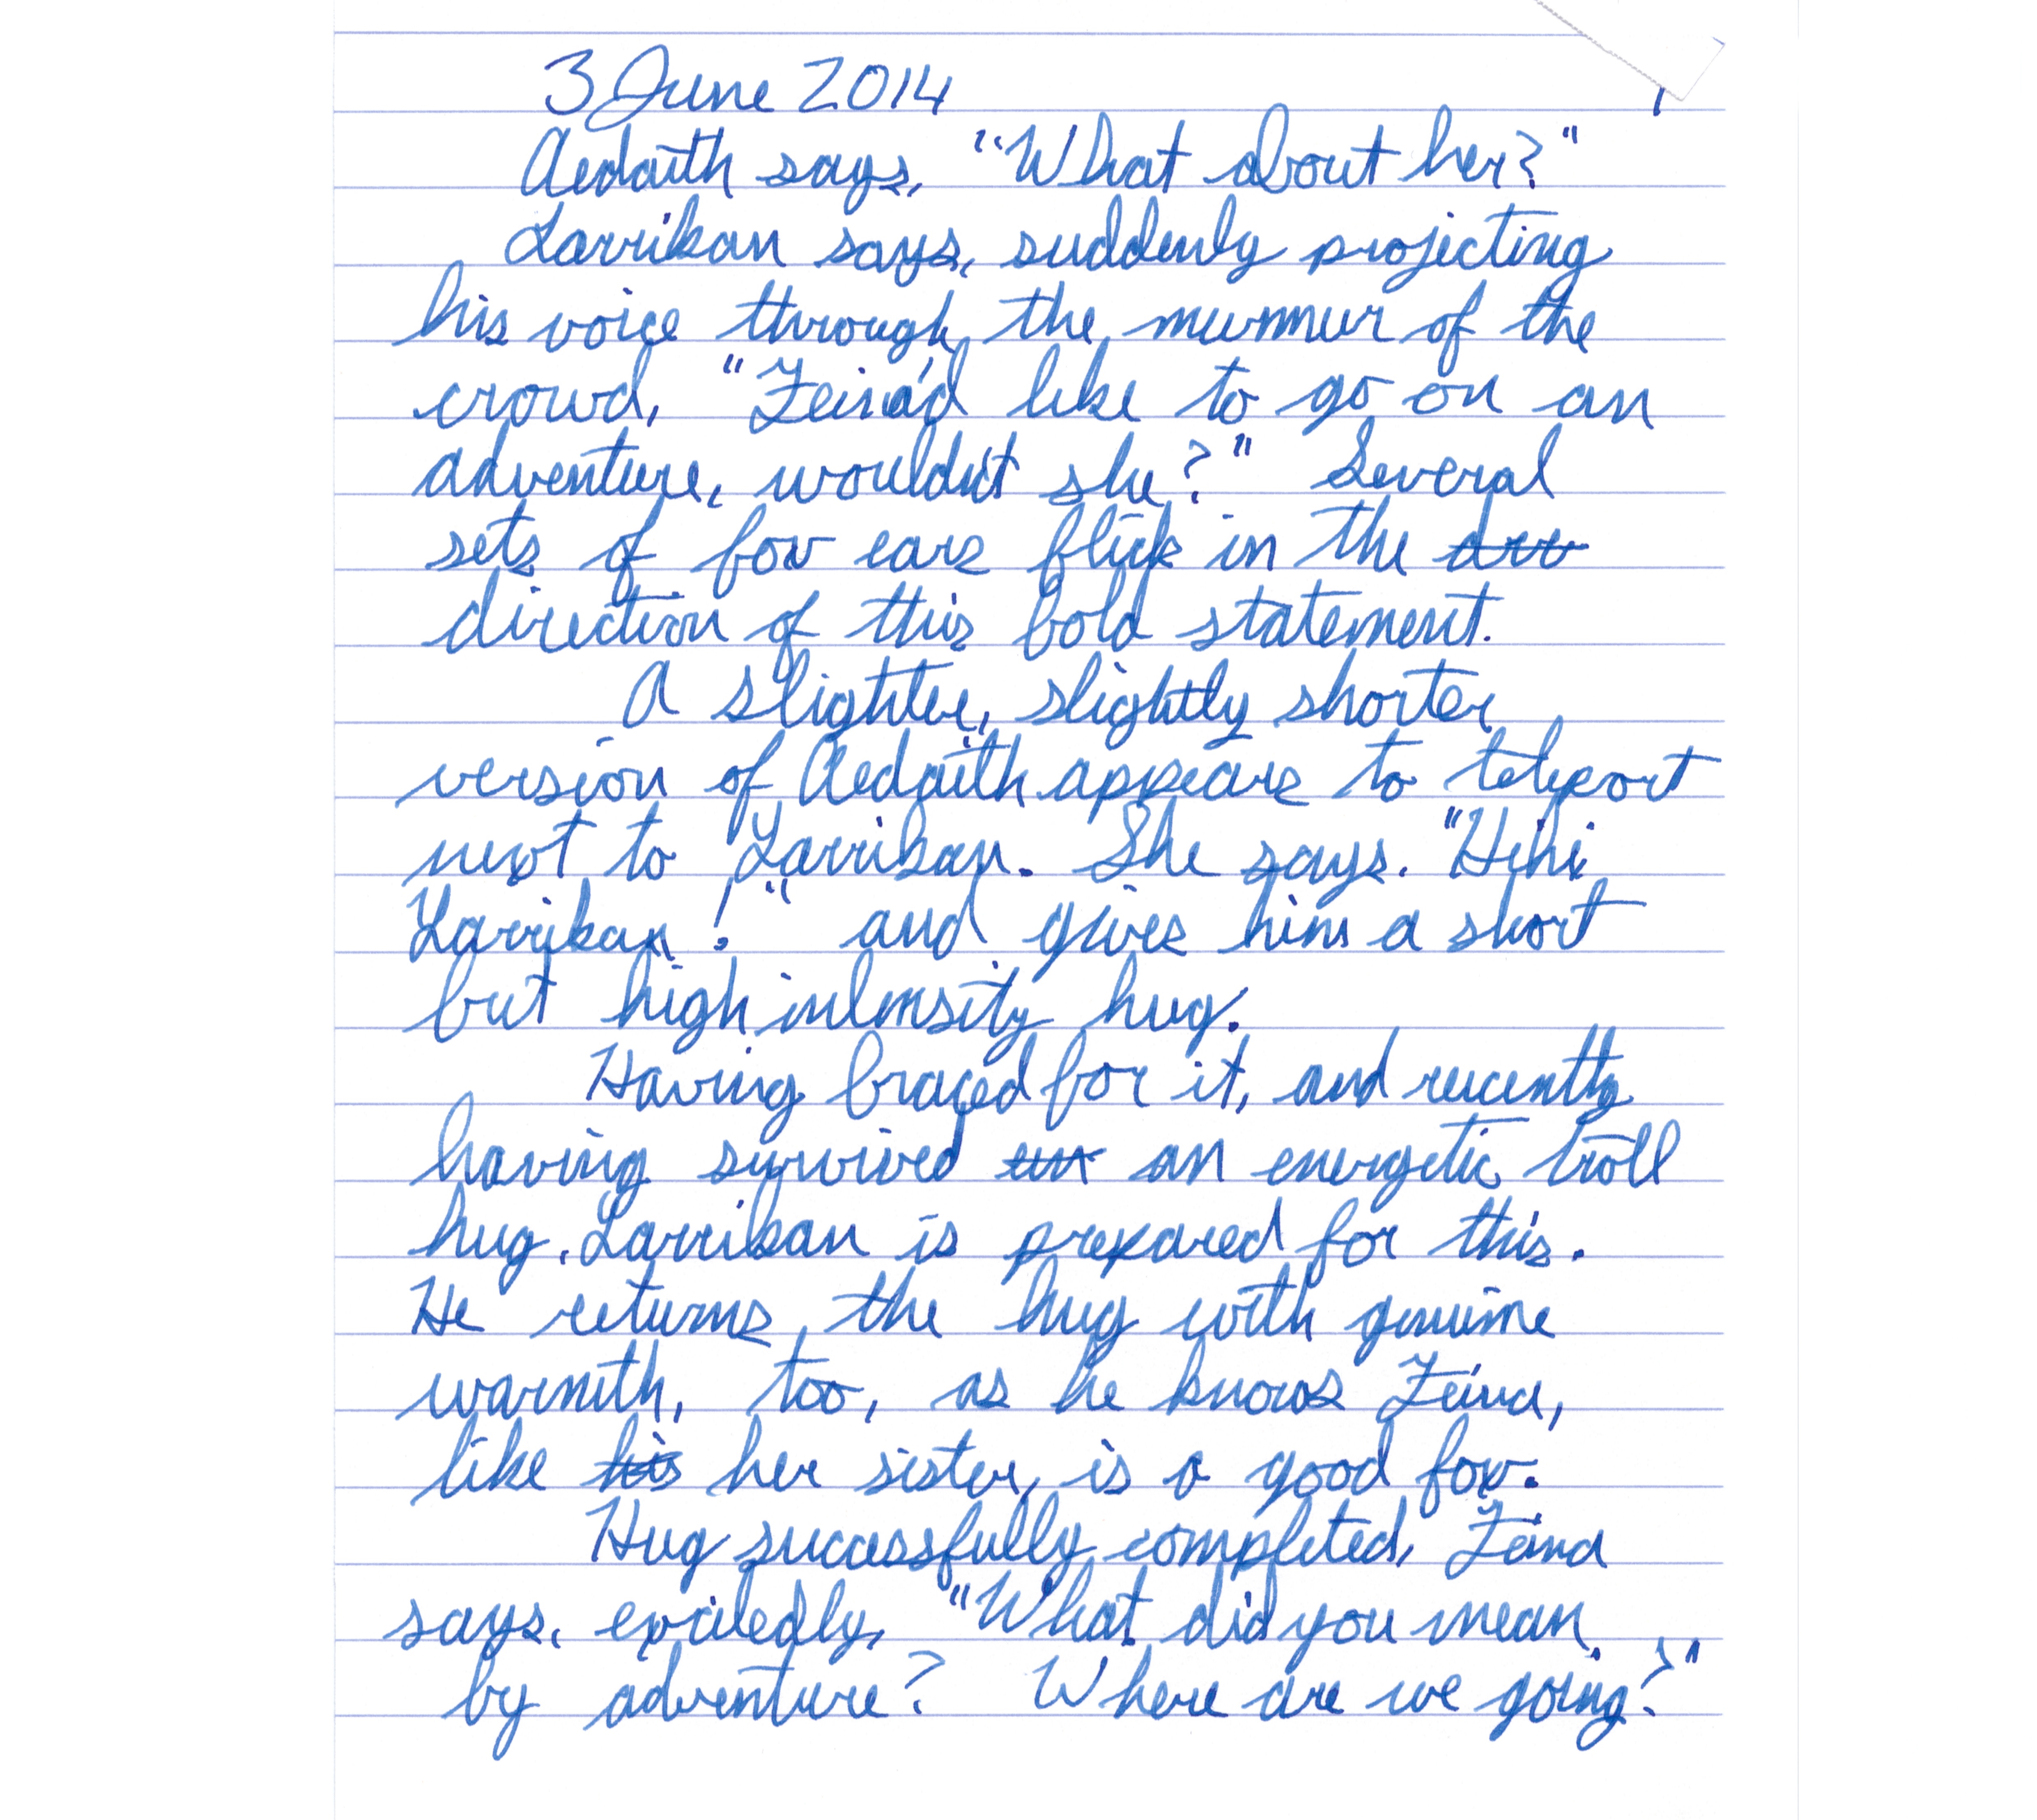 3 June 2014 1
Aedaith says, "What about her?"
Larrikan says, suddenly projecting
his voice through the murmur of the
crowd, "Zeina'd like to go on an
adventure, wouldn't she?" Several
sets of fox ears flick in the drr
direction of this bold statement.
A slighter, slightly shorter
version of Aedaith appears to teleport
next to Larrikan. She says. "Hihi
Larrikan!" and gives him a short
but high intensity hug.
Having braced for it, and recently
having survived en an energetic troll
hug, Larrikan is prepared for this.
He returns the hug with genuine
warmth, too, as he knows Zeina,
like his her sister, is a good fox.
Hug successfully completed, Zeina
says, excitedly, "What did you mean
by adventure? Where are we going?"